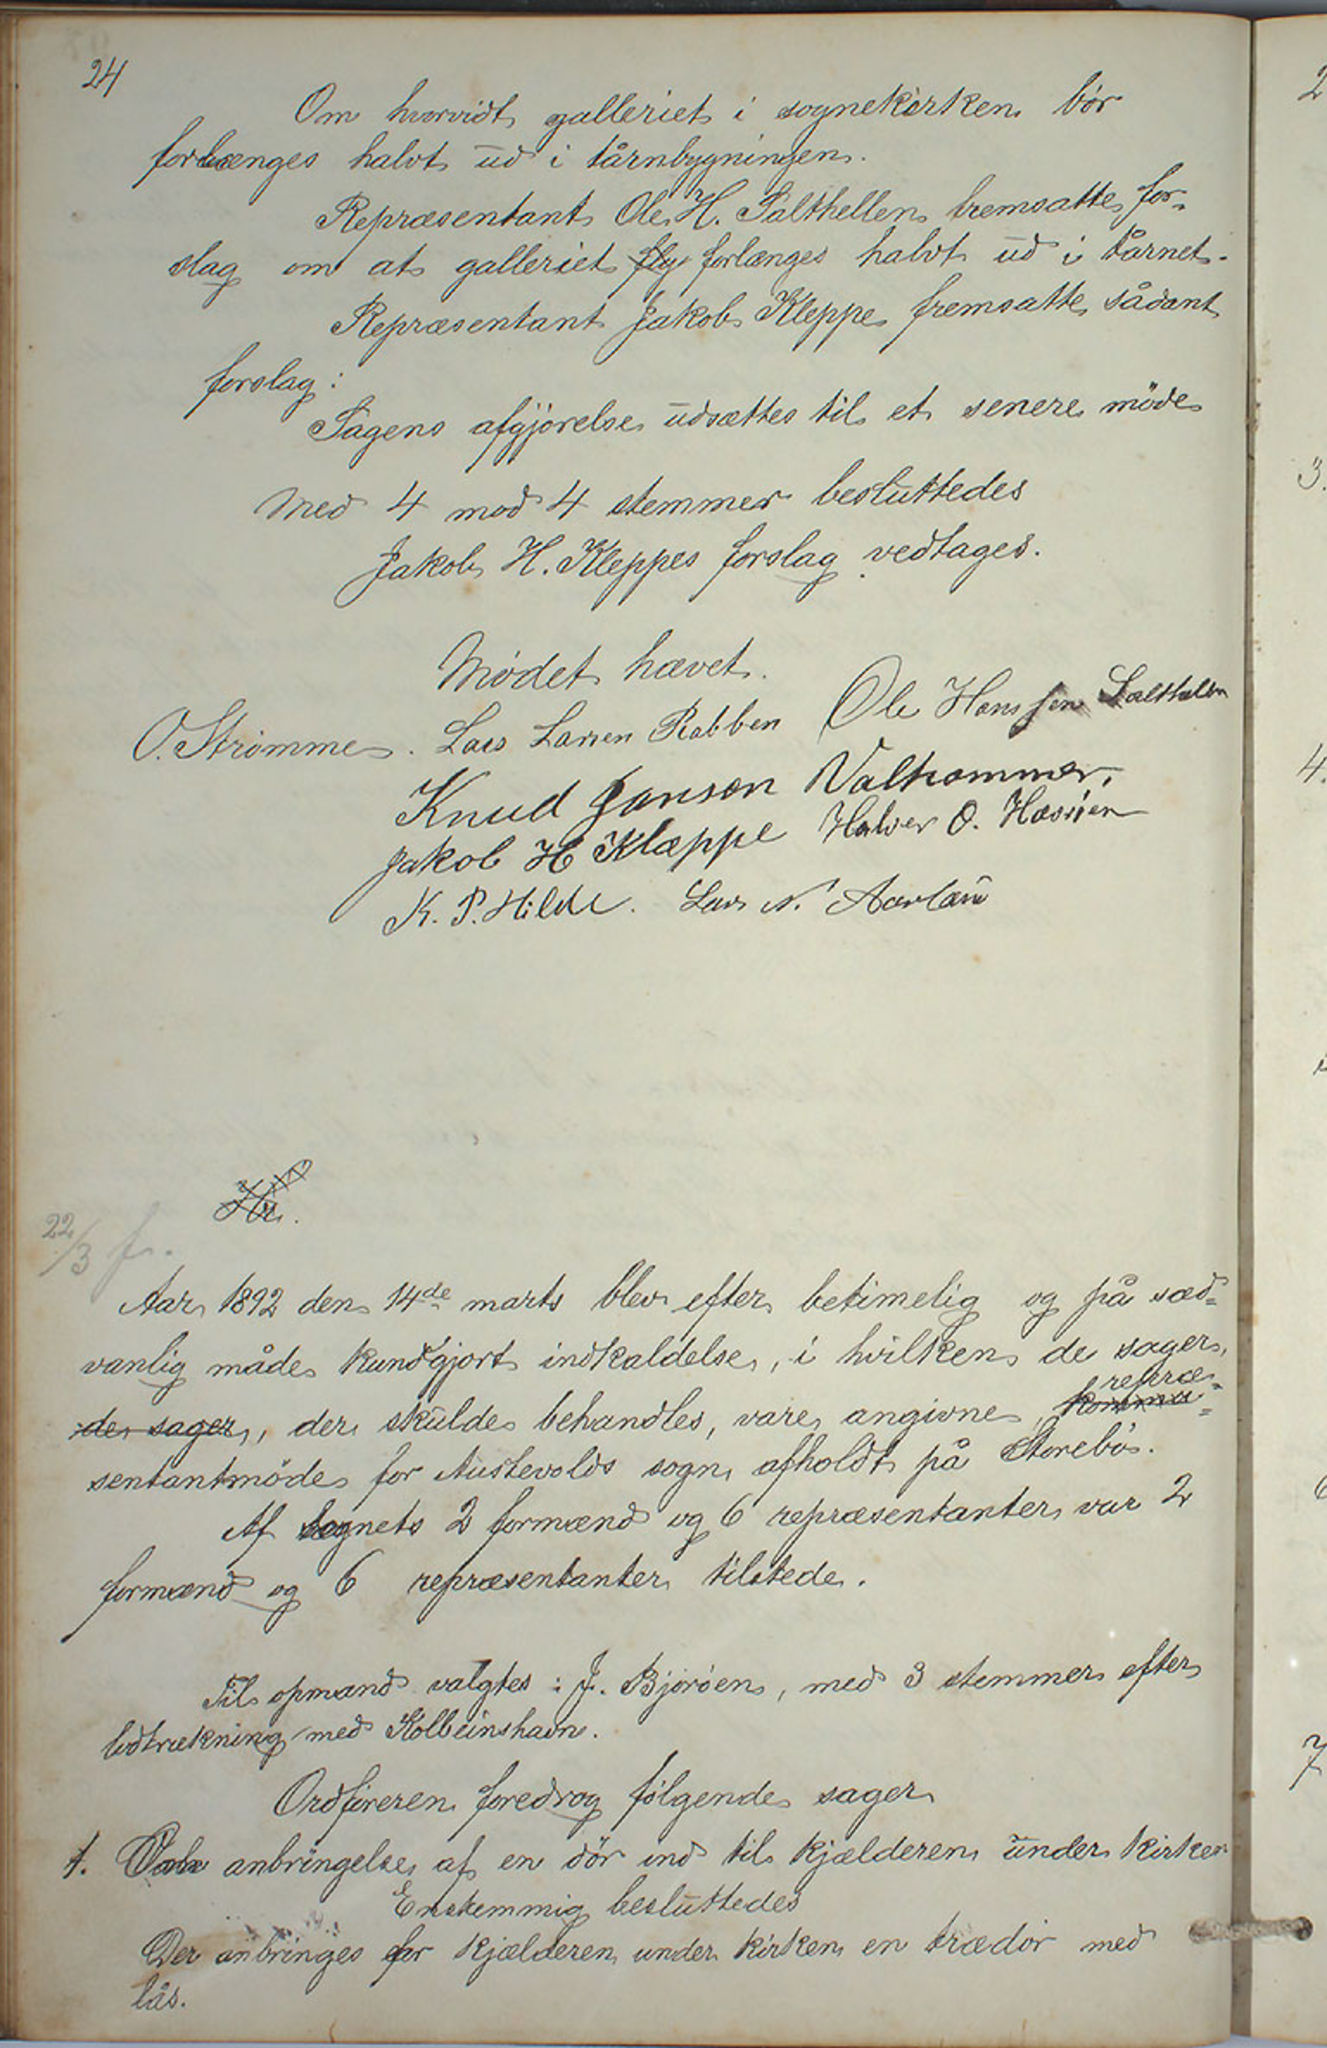 24
Om hvorvidt galleriet i sognekirken bör
forlænges halvt ud i tårnbygningen.
Repræsentant Ole H. Salthellen fremsatte for-
slag om at galleriet forlænges halvt ud i tårnet.
Repræsentant Jakob Kleppe fremsatte sådant
forslag:
Sagens afgjörelse udsættes til et senere möde
Med 4 mod 4 stemmer besluttedes
Jakob H. Kleppes forslag vedtages.
Mödet hævet.
O. Strömme. Lars Larsen Rabben Ole Hanssen Salthelen
Knud Jansen Valhammer.
Jakob H Klæppe Halver O. Hævröen
K. P. Hilde. Lars N. Aarland
22/3 f.
Aar 1892 den 14de marts blev efter betimelig og på sæd-
vanlig måde kundgjort indkaldelse, i hvilken de sager,
de sager, der skulde behandles, vare angivne, repræ-
sentantmöde for Austevolds sogn afholdt på Storebö.
Af sognets 2 formænd og 6 repræsentanter var 2
formænd og 6 repræsentanter tilstede.
Til opmand valgtes: J. Björöen, med 3 stemmer efter
lodtrækning med Kolbeinshavn.
Ordföreren foredrog fölgende sager
1. anbringelse af en dör ind til kjælderen under kirken
Enstemmig besluttedes
Der anbringes for kjælderen under kirken en trædör med
lås.
2
3.
4.
6
7